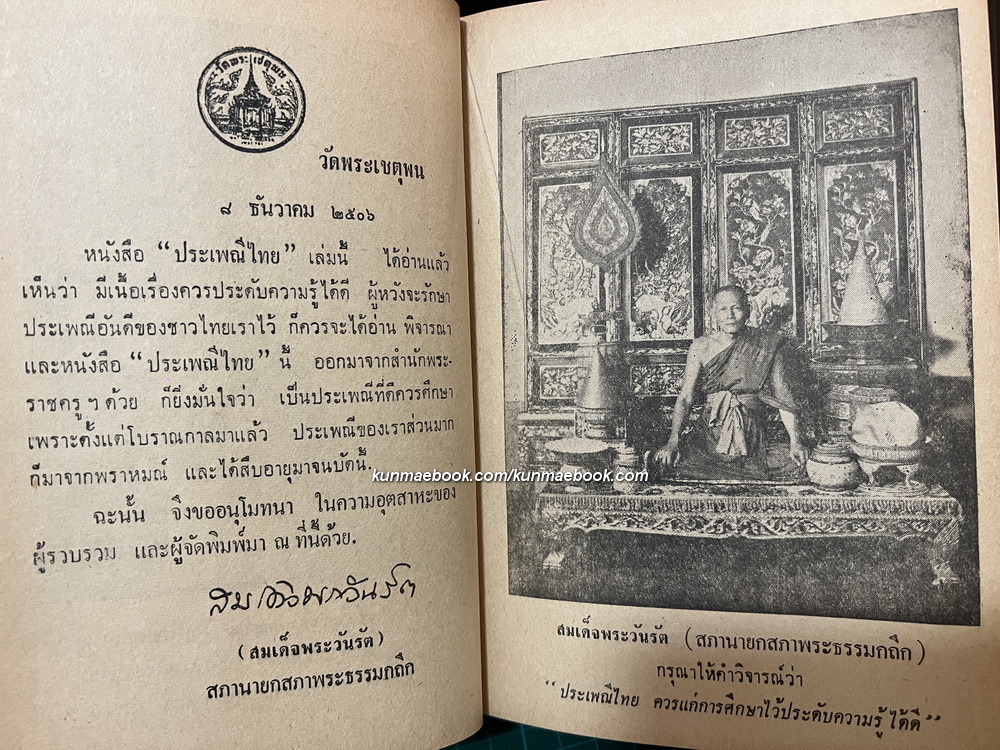 วัดพระเชตุพน
วัดพระเชตุพน
๘ ธันวาคม ๒๕๐๖
หนังสือ “ประเพณีไทย” เล่มนี้ ได้อ่านแล้ว
เห็นว่า มีเนื้อเรื่องควรประดับความรู้ได้ดี ผู้หวังจะรักษา
ประเพณีอันดีของชาวไทยเราไว้ ก็ควรจะได้อ่าน พิจารณา
และหนังสือ “ประเพณีไทย” นี้ ออกมาจากสำนักพระ-
ราชครู ฯ ด้วย ก็ยิ่งมั่นใจว่า เป็นประเพณีที่ดีควรศึกษา
เพราะตั้งแต่โบราณกาลมาแล้ว ประเพณีของเราส่วนมาก
ก็มาจากพราหมณ์ และได้สืบอายุมาจนบัดนี้.
ฉะนั้น จึงขออนุโมทนา ในความอุตสาหะของ
ผู้รวบรวม และผู้จัดพิมพ์มา ณ ที่นี้ด้วย.
สมเด็จพระวันรัต
(สมเด็จพระวันรัต)
สภานายกสภาพระธรรมกถึก
kunmaebook.com/kunmaebook.com
สมเด็จพระวันรัต (สภานายกสภาพระธรรมกถึก)
กรุณาให้คำวิจารณ์ว่า
“ประเพณีไทย ควรแก่การศึกษาไว้ประดับความรู้ ได้ดี”